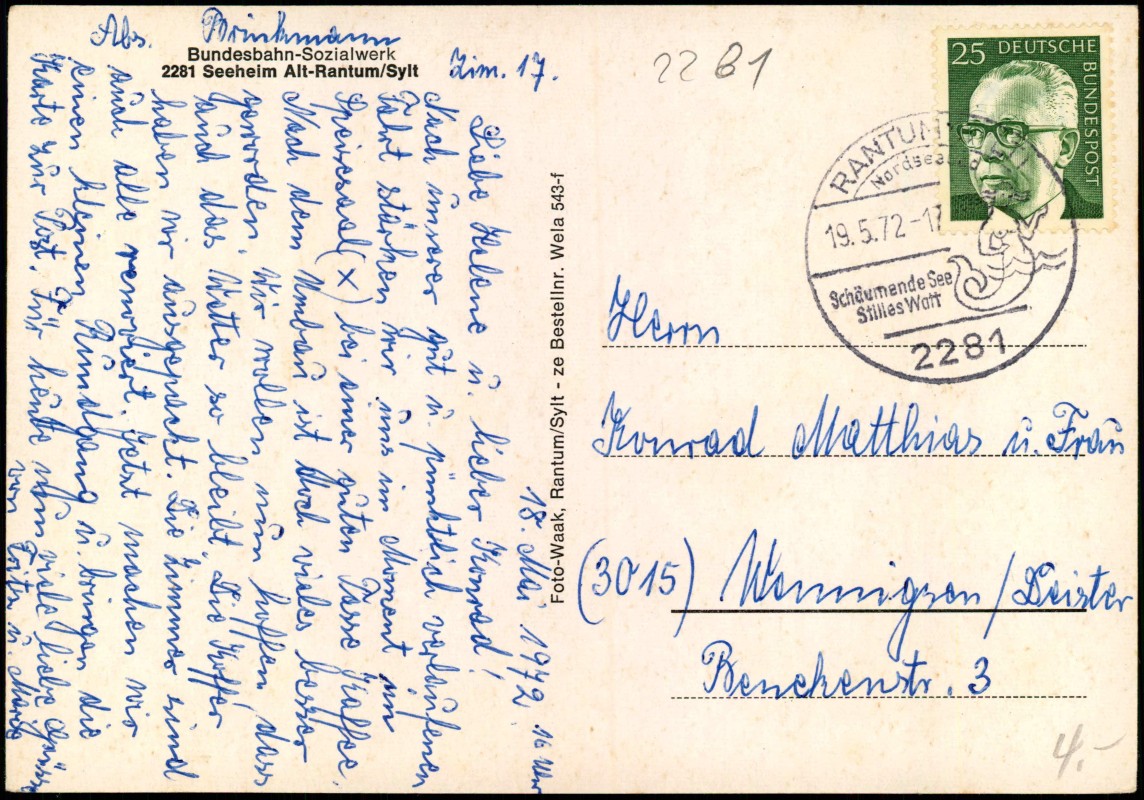 Abs. Brinkmann
Bundesbahn-Sozialwerk
2281 Seeheim Alt-Rantum/Sylt
Zim. 17.
18. Mai 1972 16 Uhr
Liebe Helene u. lieber Konrad!
Nach unserer gut u. pünktlich verlaufenen
Fahrt stärken wir uns im Moment im
Speisesaal (x) bei einer guten Tasse Kaffee.
Nach dem Umbau ist doch vieles besser
geworden. Wir wollen nun hoffen, dass
auch das Wetter so bleibt. Die Koffer
haben wir ausgepackt. Die Zimmer sind
auch alle renoviert. Jetzt machen wir
einen kleinen Rundgang u. bringen die
Karte zur Post. Für heute nun viele liebe Grüsse
von Fritz u.
Foto-Waak, Rantum/Sylt - ze Bestellnr. Wela 543-f
2281
25 DEUTSCHE
BUNDESPOST
RANTUM
Nordsee
19.5.72-17
Schäumende See
Stilles Watt
2281
Herrn
Konrad Matthias u. Frau
(3015) Wennigsen/Deister
Benekenstr. 3
4.-